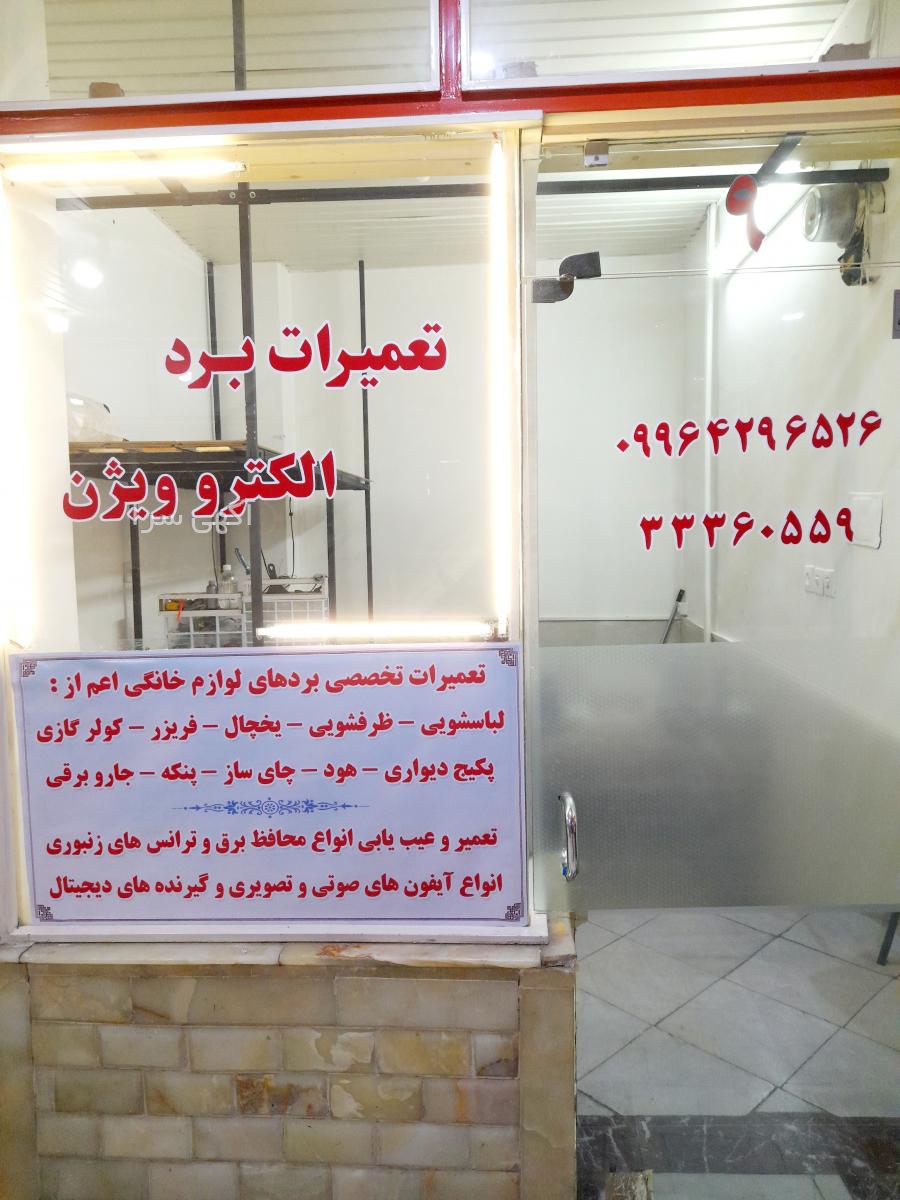 تعمیرات برد
الکترو ویژن
آگهی سرا
۰۹۹۶۴۲۹۶۵۲۶
۳۳۳۶۰۵۵۹
تعمیرات تخصصی بردهای لوازم خانگی اعم از :
لباسشویی – ظرفشویی – یخچال – فریزر – کولر گازی
پکیج دیواری – هود – چای ساز – پنکه – جارو برقی
تعمیر و عیب یابی انواع محافظ برق و ترانس های زنبوری
انواع آیفون های صوتی و تصویری و گیرنده های دیجیتال